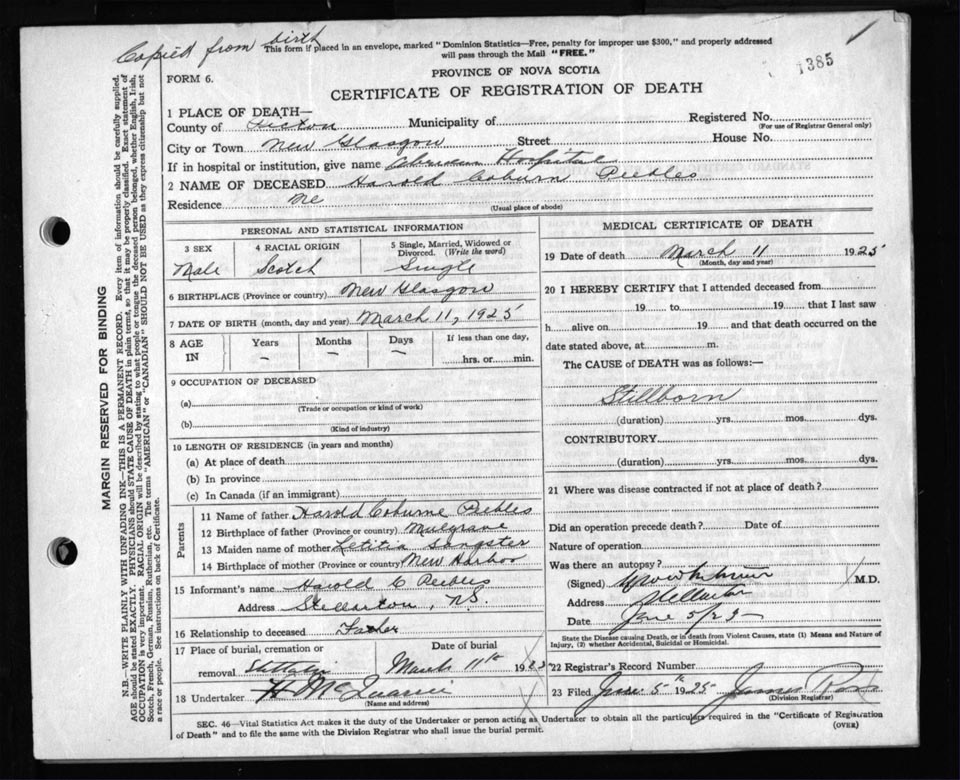 Copied from birth
This form if placed in an envelope, marked "Dominion Statistics—Free, penalty for improper use $300," and properly addressed
will pass through the Mail "FREE."
1385
PROVINCE OF NOVA SCOTIA
FORM 6.
CERTIFICATE OF REGISTRATION OF DEATH
1 PLACE OF DEATH—
County of Pictou Municipality of Registered No.
(For use of Registrar General only)
City or Town New Glasgow Street House No.
If in hospital or institution, give name Aberdeen Hospital
2 NAME OF DECEASED Harold Coburn Peebles
Residence
(Usual place of abode)
PERSONAL AND STATISTICAL INFORMATION
3 SEX 4 RACIAL ORIGIN 5 Single, Married, Widowed or
Divorced. (Write the word)
Male Scotch Single
6 BIRTHPLACE (Province or country) New Glasgow
7 DATE OF BIRTH (month, day and year) March 11, 1925
8 AGE IN Years Months Days If less than one day,
— — — hrs. or min.
9 OCCUPATION OF DECEASED
(a)
(Trade or occupation or kind of work)
(b)
(Kind of industry)
10 LENGTH OF RESIDENCE (in years and months)
(a) At place of death
(b) In province
(c) In Canada (if an immigrant)
Parents
11 Name of father Harold Coburne Peebles
12 Birthplace of father (Province or country) Mulgrave
13 Maiden name of mother Letitia Sangster
14 Birthplace of mother (Province or country) New Harbor
15 Informant's name Harold C Peebles
Address Stellarton, N.S.
16 Relationship to deceased Father
17 Place of burial, cremation or Date of burial
removal Stellarton March 11th 1925
18 Undertaker H McQuarrie
(Name and address)
MEDICAL CERTIFICATE OF DEATH
19 Date of death March 11 1925
(Month, day and year)
20 I HEREBY CERTIFY that I attended deceased from
19 to 19 that I last saw
h alive on 19 and that death occurred on the
date stated above, at m.
The CAUSE of DEATH was as follows:—
Stillborn
(duration) yrs. mos. dys.
CONTRIBUTORY
(duration) yrs. mos. dys.
21 Where was disease contracted if not at place of death?
Did an operation precede death? Date of
Nature of operation
Was there an autopsy?
(Signed) M.D.
Address Stellarton
Date June 5/25
State the Disease causing Death, or in death from Violent Causes, state (1) Means and Nature of
Injury, (2) whether Accidental, Suicidal or Homicidal.
22 Registrar's Record Number
23 Filed June 5th 1925 James
(Division Registrar)
SEC. 46—Vital Statistics Act makes it the duty of the Undertaker or person acting as Undertaker to obtain all the particulars required in the "Certificate of Registration
of Death" and to file the same with the Division Registrar who shall issue the burial permit.
(OVER)
MARGIN RESERVED FOR BINDING
N.B.—WRITE PLAINLY WITH UNFADING INK—THIS IS A PERMANENT RECORD. Every item of information should be carefully supplied.
AGE should be stated EXACTLY. PHYSICIANS should STATE CAUSE OF DEATH in plain terms, so that it may be properly classified. Exact statement of
OCCUPATION is very important. RACIAL ORIGIN will be described by stating to what people or tongue the deceased person belonged, whether English, Irish,
Scotch, French, German, Russian, Ruthenian, etc. The terms "AMERICAN" or "CANADIAN" SHOULD NOT BE USED as they express citizenship but not
a race or people. See instructions on back of Certificate.